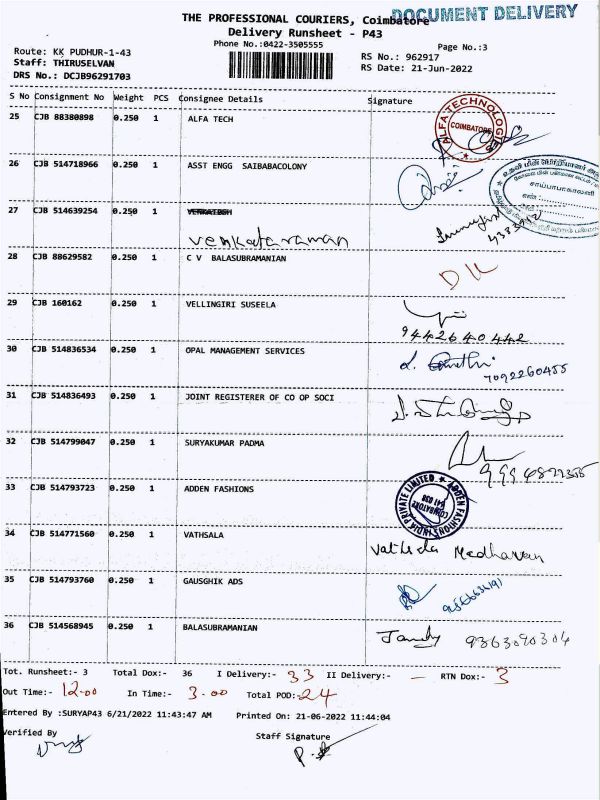 THE PROFESSIONAL COURIERS, Coimbatore
DOCUMENT DELIVERY
Delivery Runsheet - P43
Phone No.:0422-3505555
Page No.:3
Route: KK PUDHUR-1-43
RS No.: 962917
Staff: THIRUSELVAN
RS Date: 21-Jun-2022
DRS No.: DCJB96291703
S No Consignment No Weight PCS Consignee Details Signature
25 CJB 88380898 0.250 1 ALFA TECH
ALFA TECHNOLOGIES
COIMBATORE
26 CJB 514718966 0.250 1 ASST ENGG SAIBABACOLONY
சாய்பாபாகாலனி
27 CJB 514639254 0.250 1
venkataraman
28 CJB 88629582 0.250 1 C V BALASUBRAMANIAN
29 CJB 160162 0.250 1 VELLINGIRI SUSEELA
9442640442
30 CJB 514836534 0.250 1 OPAL MANAGEMENT SERVICES
7092260455
31 CJB 514836493 0.250 1 JOINT REGISTERER OF CO OP SOCI
32 CJB 514799047 0.250 1 SURYAKUMAR PADMA
33 CJB 514793723 0.250 1 ADDEN FASHIONS
ADDEN FASHIONS INDIA PRIVATE LIMITED
COIMBATORE
641 038
34 CJB 514771560 0.250 1 VATHSALA
Madhavan
35 CJB 514793760 0.250 1 GAUSGHIK ADS
36 CJB 514568945 0.250 1 BALASUBRAMANIAN
9363090304
Tot. Runsheet:- 3 Total Dox:- 36 I Delivery:- 33 II Delivery:- — RTN Dox:- 3
Out Time:- 12.00 In Time:- 3.00 Total POD:- 24
Entered By :SURYAP43 6/21/2022 11:43:47 AM Printed On: 21-06-2022 11:44:04
Verified By
Staff Signature